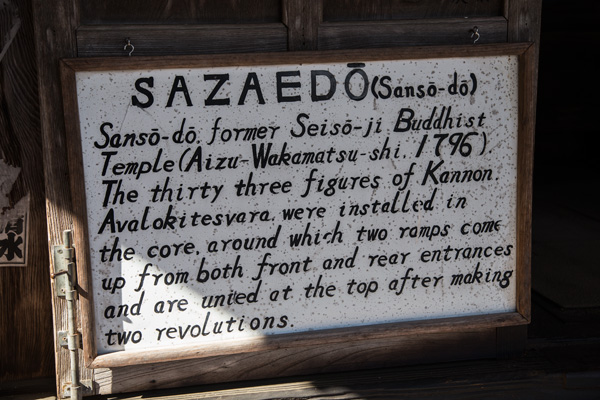 SAZAEDŌ (Sansō-dō)
Sansō-dō, former Seisō-ji Buddhist
Temple (Aizu-Wakamatsu-shi. 1796)
The thirty three figures of Kannon
Avalokitesvara. were installed in
the core, around which two ramps come
up from both front and rear entrances
and are united at the top after making
two revolutions.
水